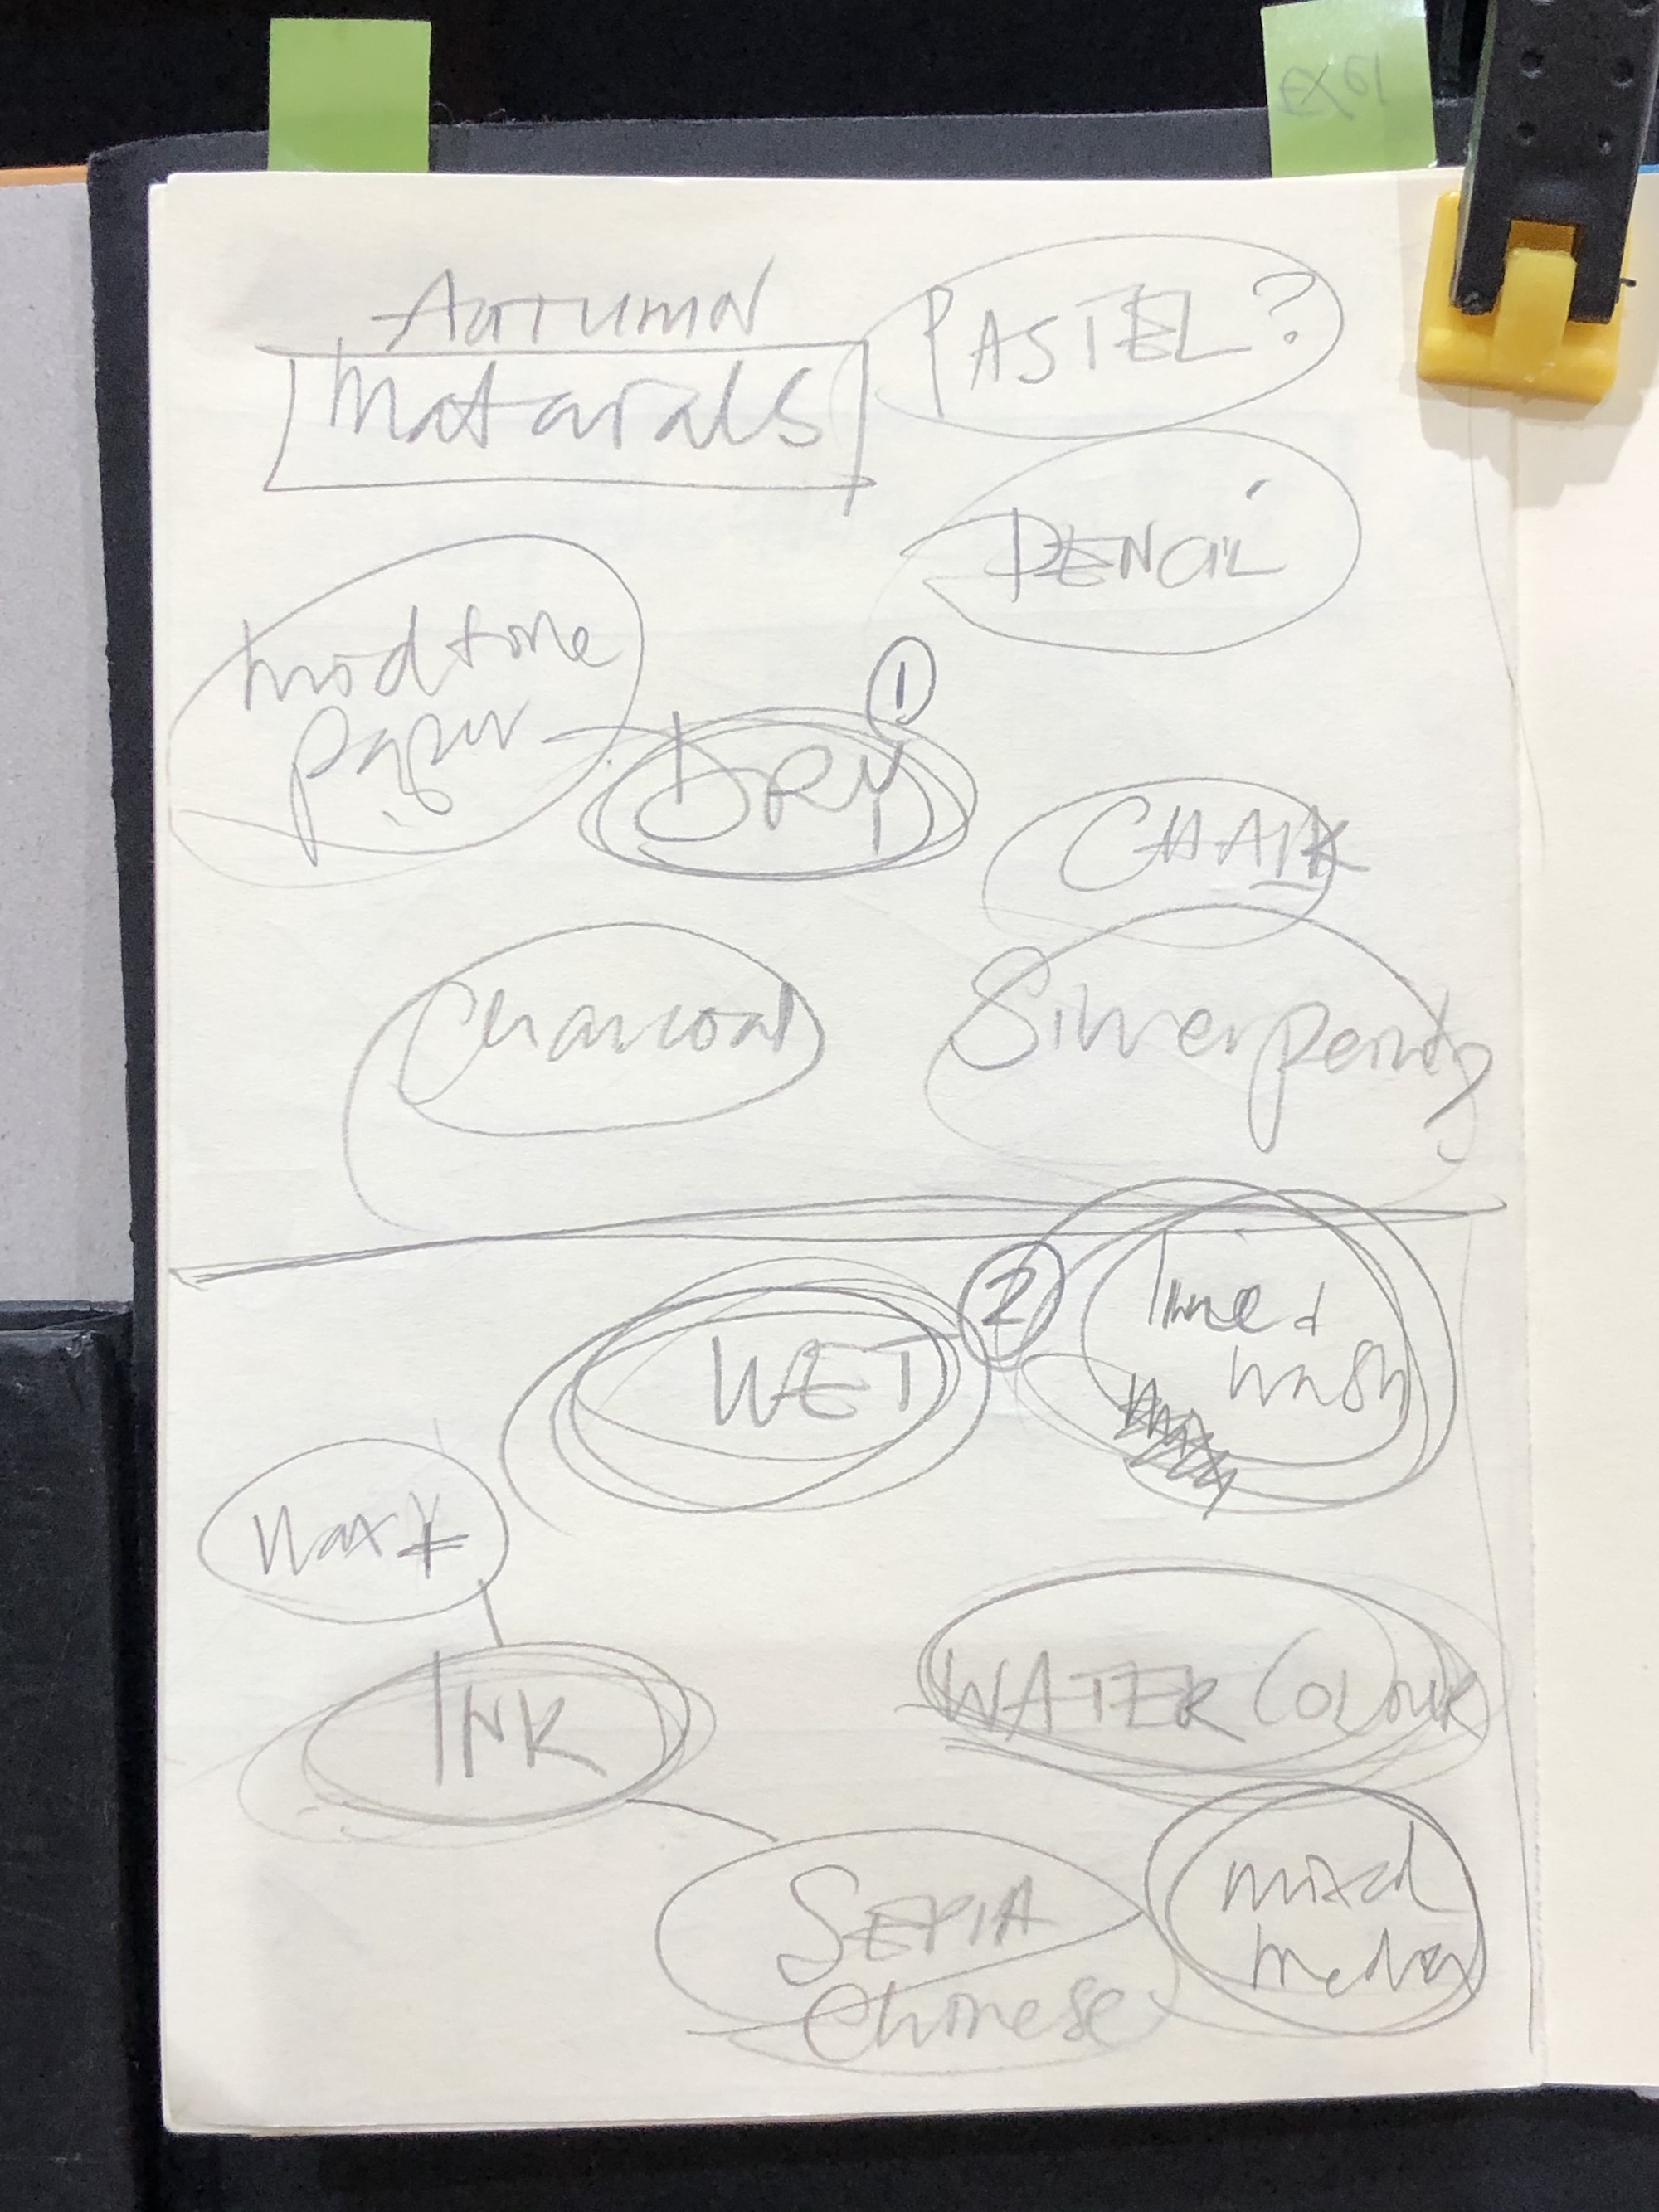 EX61
AUTUMN
Matarals
PASTEL?
PENCIL
midtone
paper
1
DRY
CHALK
Charcoal
Silverpoint
2
WET
line +
wash
Wax
INK
WATER COLOUR
SEPIA
Chinese
mixed
media